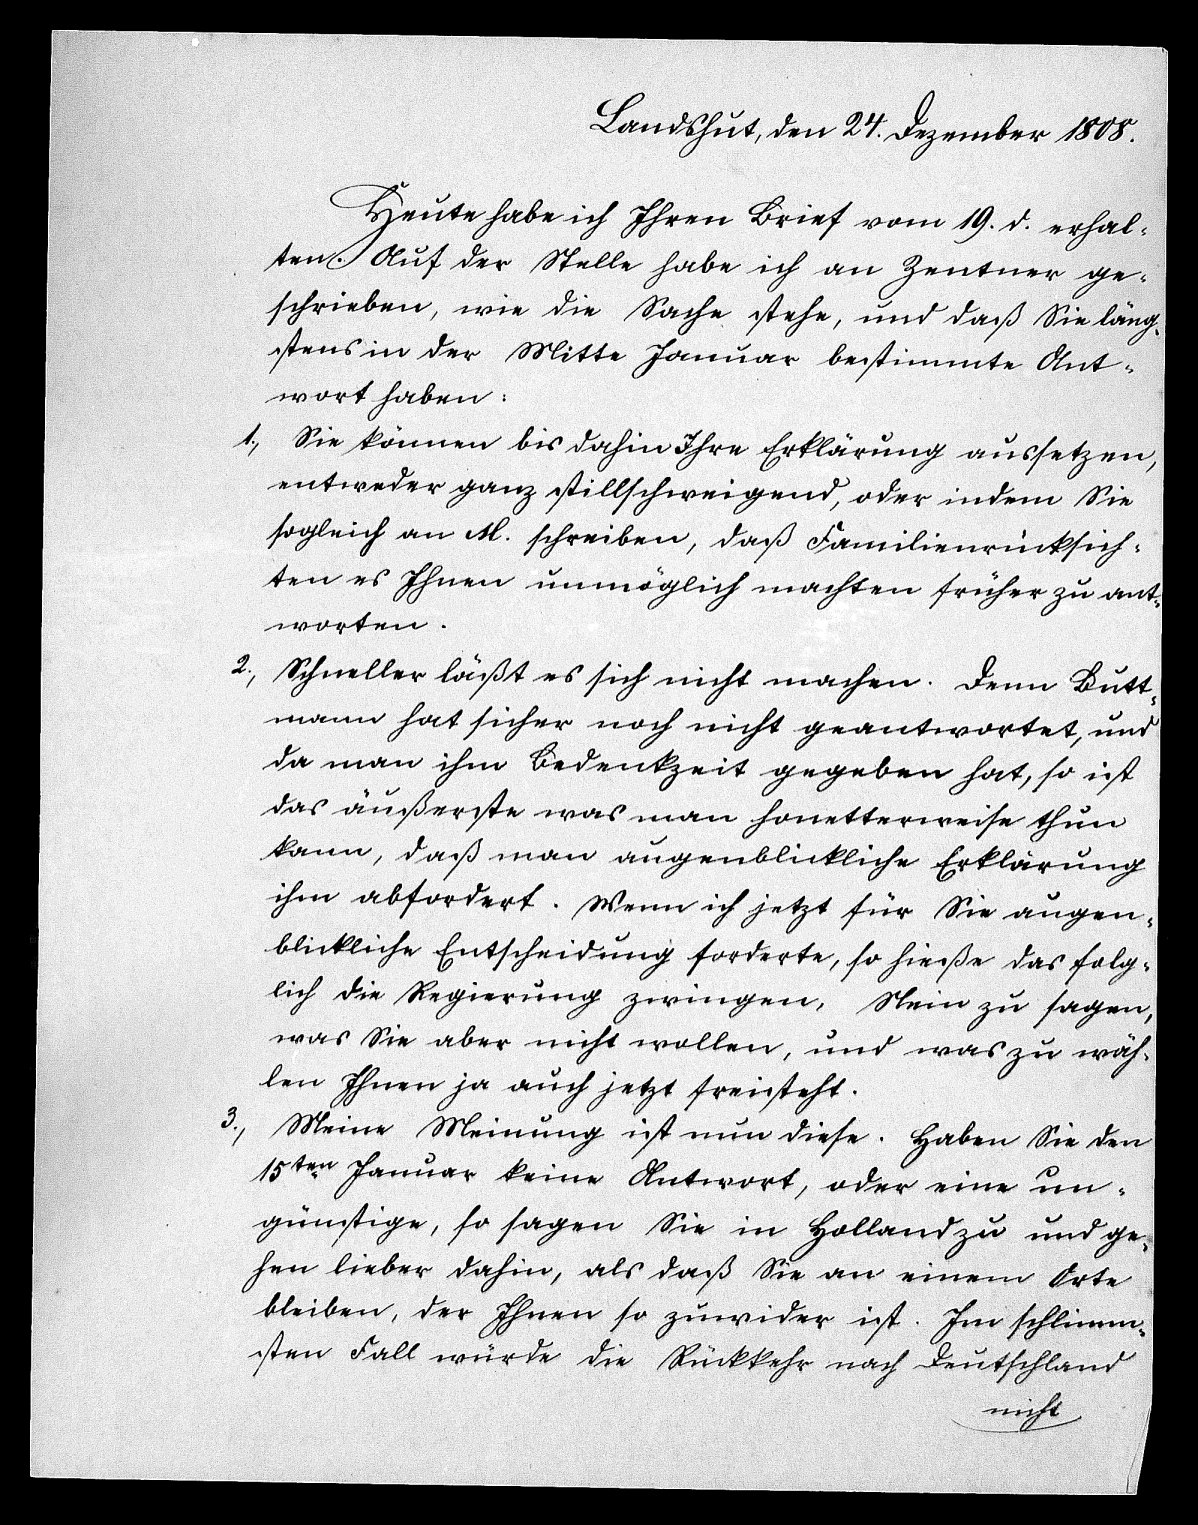 Landshut, den 24. Dezember 1808.
Heute habe ich Ihren Brief vom 19. d. erhal-
ten. Auf der Stelle habe ich an Zentner ge-
schrieben, wie die Sache stehe, und daß Sie läng-
stens in der Mitte Januar bestimmte Ant-
wort haben:
1., Sie können bis dahin Ihre Erklärung aussetzen,
entweder ganz stillschweigend, oder indem Sie
sogleich an M. schreiben, daß Familienrücksich-
ten es Ihnen unmöglich machten früher zu ant-
worten.
2., Schneller läßt es sich nicht machen. Denn Butt-
mann hat sicher noch nicht geantwortet, und
da man ihm Bedenkzeit gegeben hat, so ist
das äußerste was man honetterweise thun
kann, daß man augenblickliche Erklärung
ihm abfordert. Wenn ich jetzt für Sie augen-
blickliche Entscheidung forderte, so hieße das folg-
lich die Regierung zwingen, Nein zu sagen,
was Sie aber nicht wollen, und was zu wäh-
len Ihnen ja auch jetzt freisteht.
3., Meine Meinung ist nun diese. Haben Sie den
15ten Januar keine Antwort, oder eine un-
günstige, so sagen Sie in Holland zu und ge-
hen lieber dahin, als daß Sie an einem Orte
bleiben, der Ihnen so zuwider ist. Im schlimm-
sten Fall würde die Rückkehr nach Deutschland
nicht